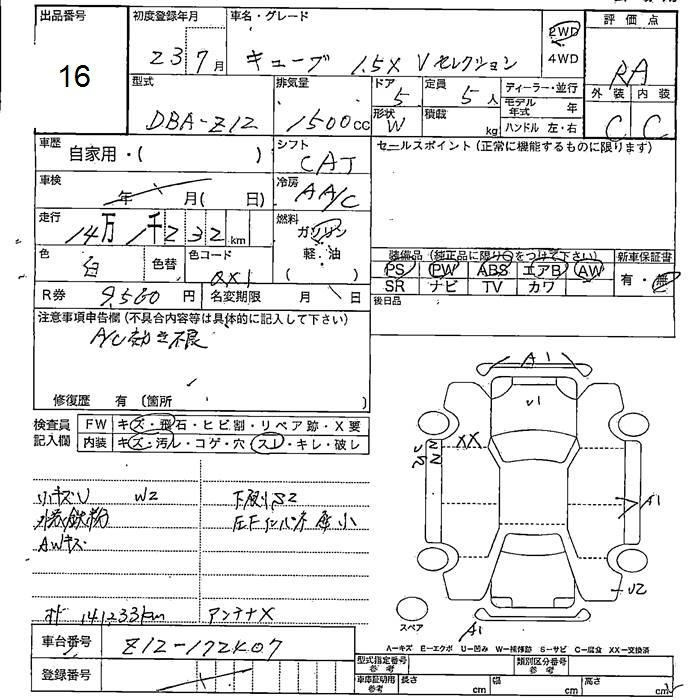 出品番号 16
初度登録年月 23 7月
車名・グレード キューブ 1.5X Vセレクション
2WD
4WD
評価点 RA
外装 内装
C C
型式 DBA-Z12
排気量 1500cc
ドア 5
定員 5人
形状 W
積載 kg
ディーラー・並行
モデル年式 年
ハンドル 左・右
車歴 自家用・( )
シフト CAT
セールスポイント (正常に機能するものに限ります)
車検 年 月( 日)
冷房 AA/C
走行 14万1千232km
燃料 ガソリン
軽・油
( )
色 白
色替
色コード QX1
装備品 (純正品に限り○をつけて下さい)
新車保証書
PS PW ABS エアB AW
SR ナビ TV カワ
有・無
R券 9,560円
名変期限 月 日
後日品
注意事項申告欄 (不具合内容等は具体的に記入して下さい)
A/C
修復歴 有 (箇所 )
検査員記入欄
FW キズ・飛石・ヒビ割・リペア跡・X要
内装 キズ・汚レ・コゲ・穴・スレ・キレ・破レ
小キズU W2
下廻りS2
鉄粉
AWキズ
141233km アンテナX
A1
U1
XX
A1
U2
A1
スペア
A－キズ E－エクボ U－凹み W－補修跡 S－サビ C－腐食 XX－交換済
車台番号
登録番号
型式指定番号 参考
類別区分番号 参考
車庫証明用 参考 長さ cm 幅 cm 高さ cm